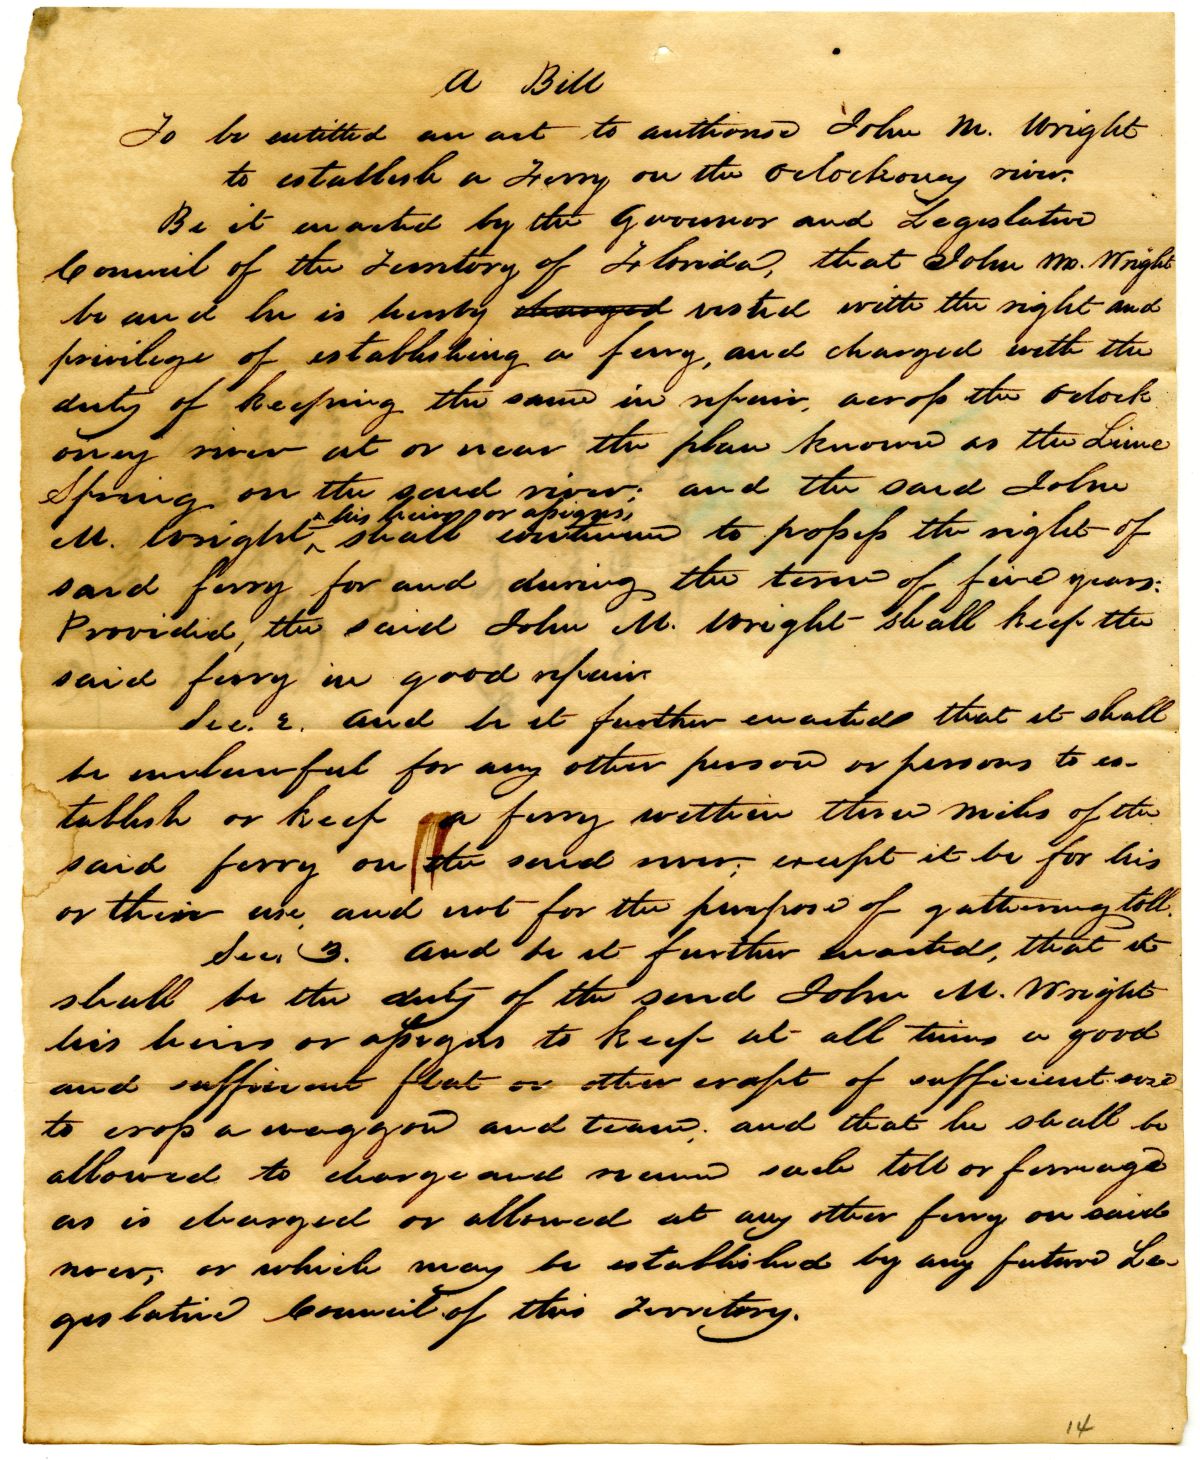 A Bill
To be entitled an act to authorise John M. Wright
to establish a Ferry on the Oclockoney river.
Be it enacted by the Governor and Legislative
Council of the Territory of Florida, that John M. Wright
be and he is hereby charged vested with the right and
privilege of establishing a ferry, and charged with the
duty of keeping the same in repair, across the Oclock
oney river at or near the place known as the Lime
Spring on the said river; and the said John
his heirs or assigns,
M. Wright shall continue to possess the right of
said ferry for and during the term of five years:
Provided, the said John M. Wright shall keep the
said ferry in good repair.
Sec. 2. And be it further enacted that it shall
be unlawful for any other person or persons to es-
tablish or keep a ferry within three miles of the
said ferry on the said river; except it be for his
or their use, and not for the purpose of gathering toll.
Sec. 3. And be it further enacted, that it
shall be the duty of the said John M. Wright
his heirs or assigns to keep at all times a good
and sufficient flat or other craft of sufficient size
to cross a waggon and team; and that he shall be
allowed to charge and receive such toll or ferriage
as is charged or allowed at any other ferry on said
river, or which may be established by any future Le-
gislative Council of this Territory.
14